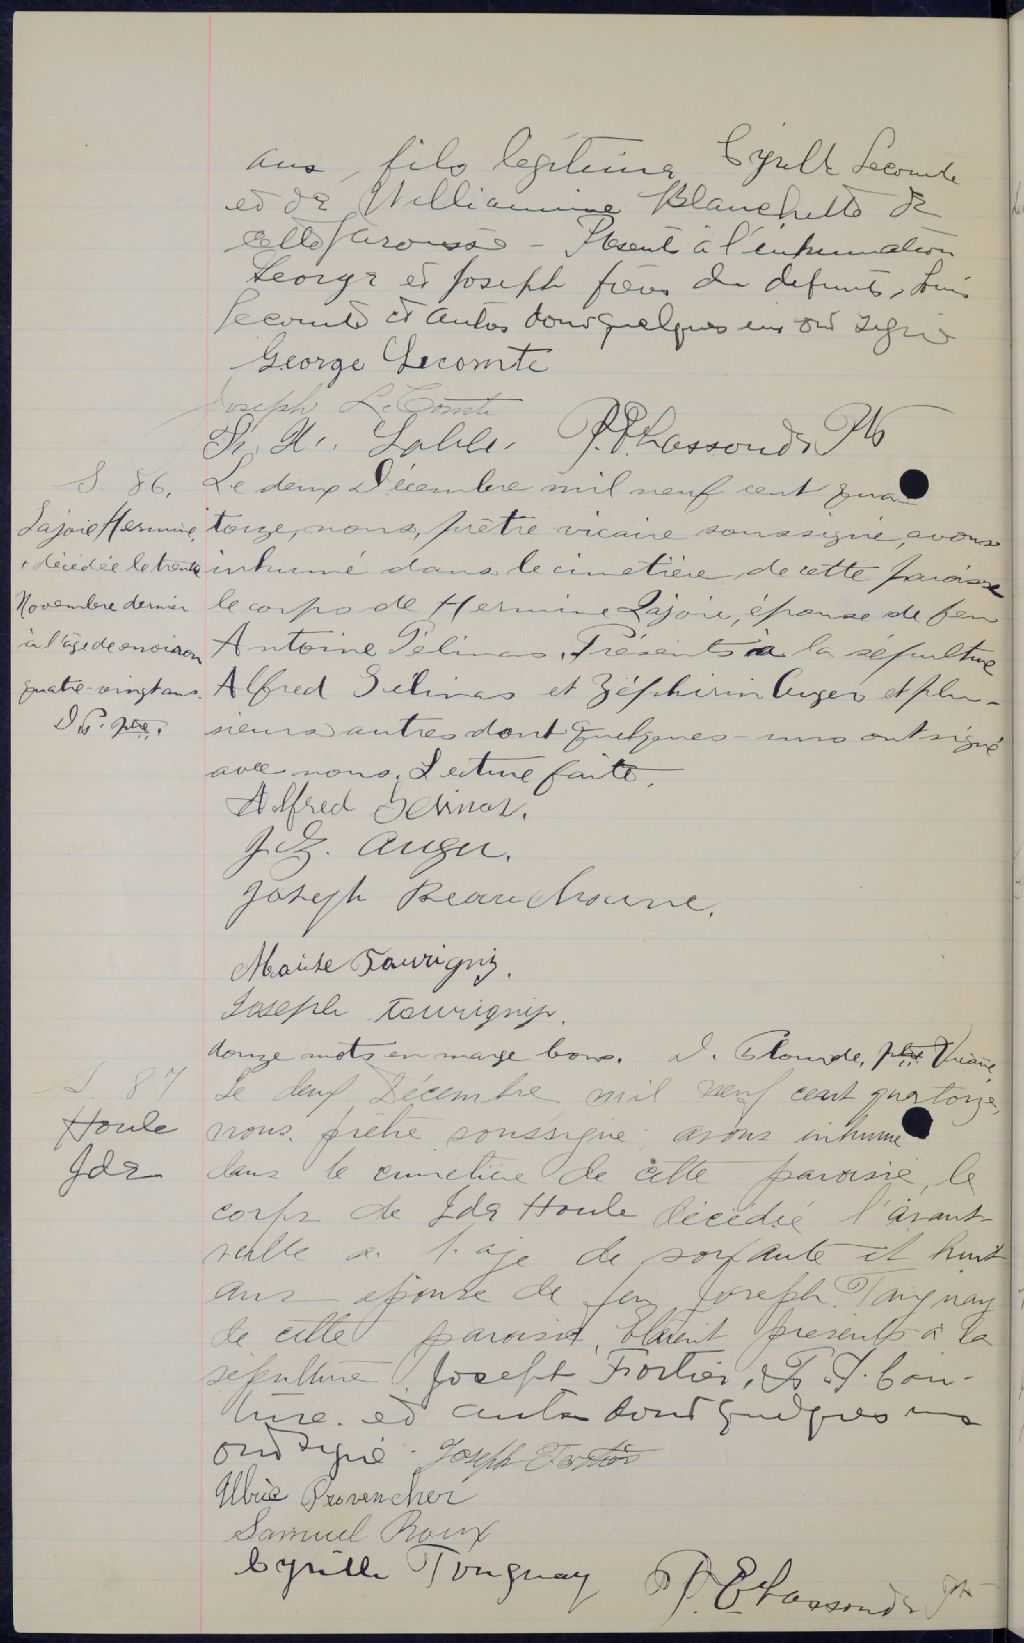 ans, fils légitime Cyrille Lecomte
et de Williamine Blanchette de
cette paroisse - Présents à l'inhumation
George et Joseph frères du défunt, Louis
Lecomte et autres dont quelques uns ont signé
George Lecomte
Joseph LeComte
P. E. Lassonde Ptr
S 86.
Lajoie Hermine,
décédée le trente
Novembre dernier
à l'âge de environ
quatre-vingt ans.
D. P. ptre.
Le deux Décembre mil neuf cent qua
torze, nous, prêtre vicaire soussigné, avons
inhumé dans le cimetière de cette paroisse
le corps de Hermine Lajoie, épouse de feu
Antoine Gélinas. Présents à la sépulture
Alfred Gélinas et Zéphirin Auger et plu-
sieurs autres dont quelques-uns ont signé
avec nous. Lecture faite.
Alfred Gelinas.
J. Z. Auger.
Joseph Beauchesne.
Tourigny.
Joseph Tourigny.
douze mots en marge bons. D. Plourde, ptre Vicaire
S 87
Houle
Ida
Le deux Décembre mil neuf cent quatorze,
nous prêtre soussigné avons inhumé
dans le cimetière de cette paroisse, le
corps de Ida Houle décédée l'avant-
veille a l'age de soixante et huit
ans épouse de feu Joseph Tanguay
de cette paroisse. Etaient présents à la
sépulture Joseph Fortier, F. J. Cou-
ture et autres dont quelques uns
ont signé. Joseph Fortier
Ulric Provencher
Samuel Roux
Cyrille Tanguay P. E. Lassonde Ptr